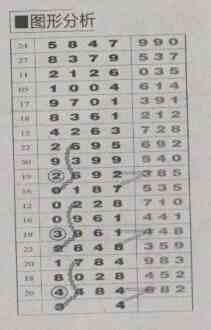 ■图形分析
24 5 8 4 7 9 9 0
27 8 3 7 9 5 3 7
14 2 1 2 6 0 3 5
05 1 0 0 4 6 1 4
17 9 7 0 1 3 9 1
18 8 3 5 1 2 1 2
12 4 2 6 3 7 2 8
22 2 6 9 5 6 9 2
30 9 3 9 9 5 4 0
19 2 6 9 2 3 8 5
16 0 1 8 7 5 3 5
12 0 2 2 8 7 1 0
16 0 9 6 1 4 4 1
19 3 9 6 1 4 4 8
22 2 8 4 8 3 5 9
20 1 7 8 4 9 8 3
18 8 0 2 8 4 5 2
20 4 4 8 4 6 8 2
4